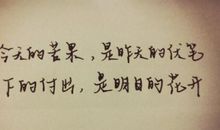 今天的苦果，是昨天的伏笔
下的付出，是明日的花开